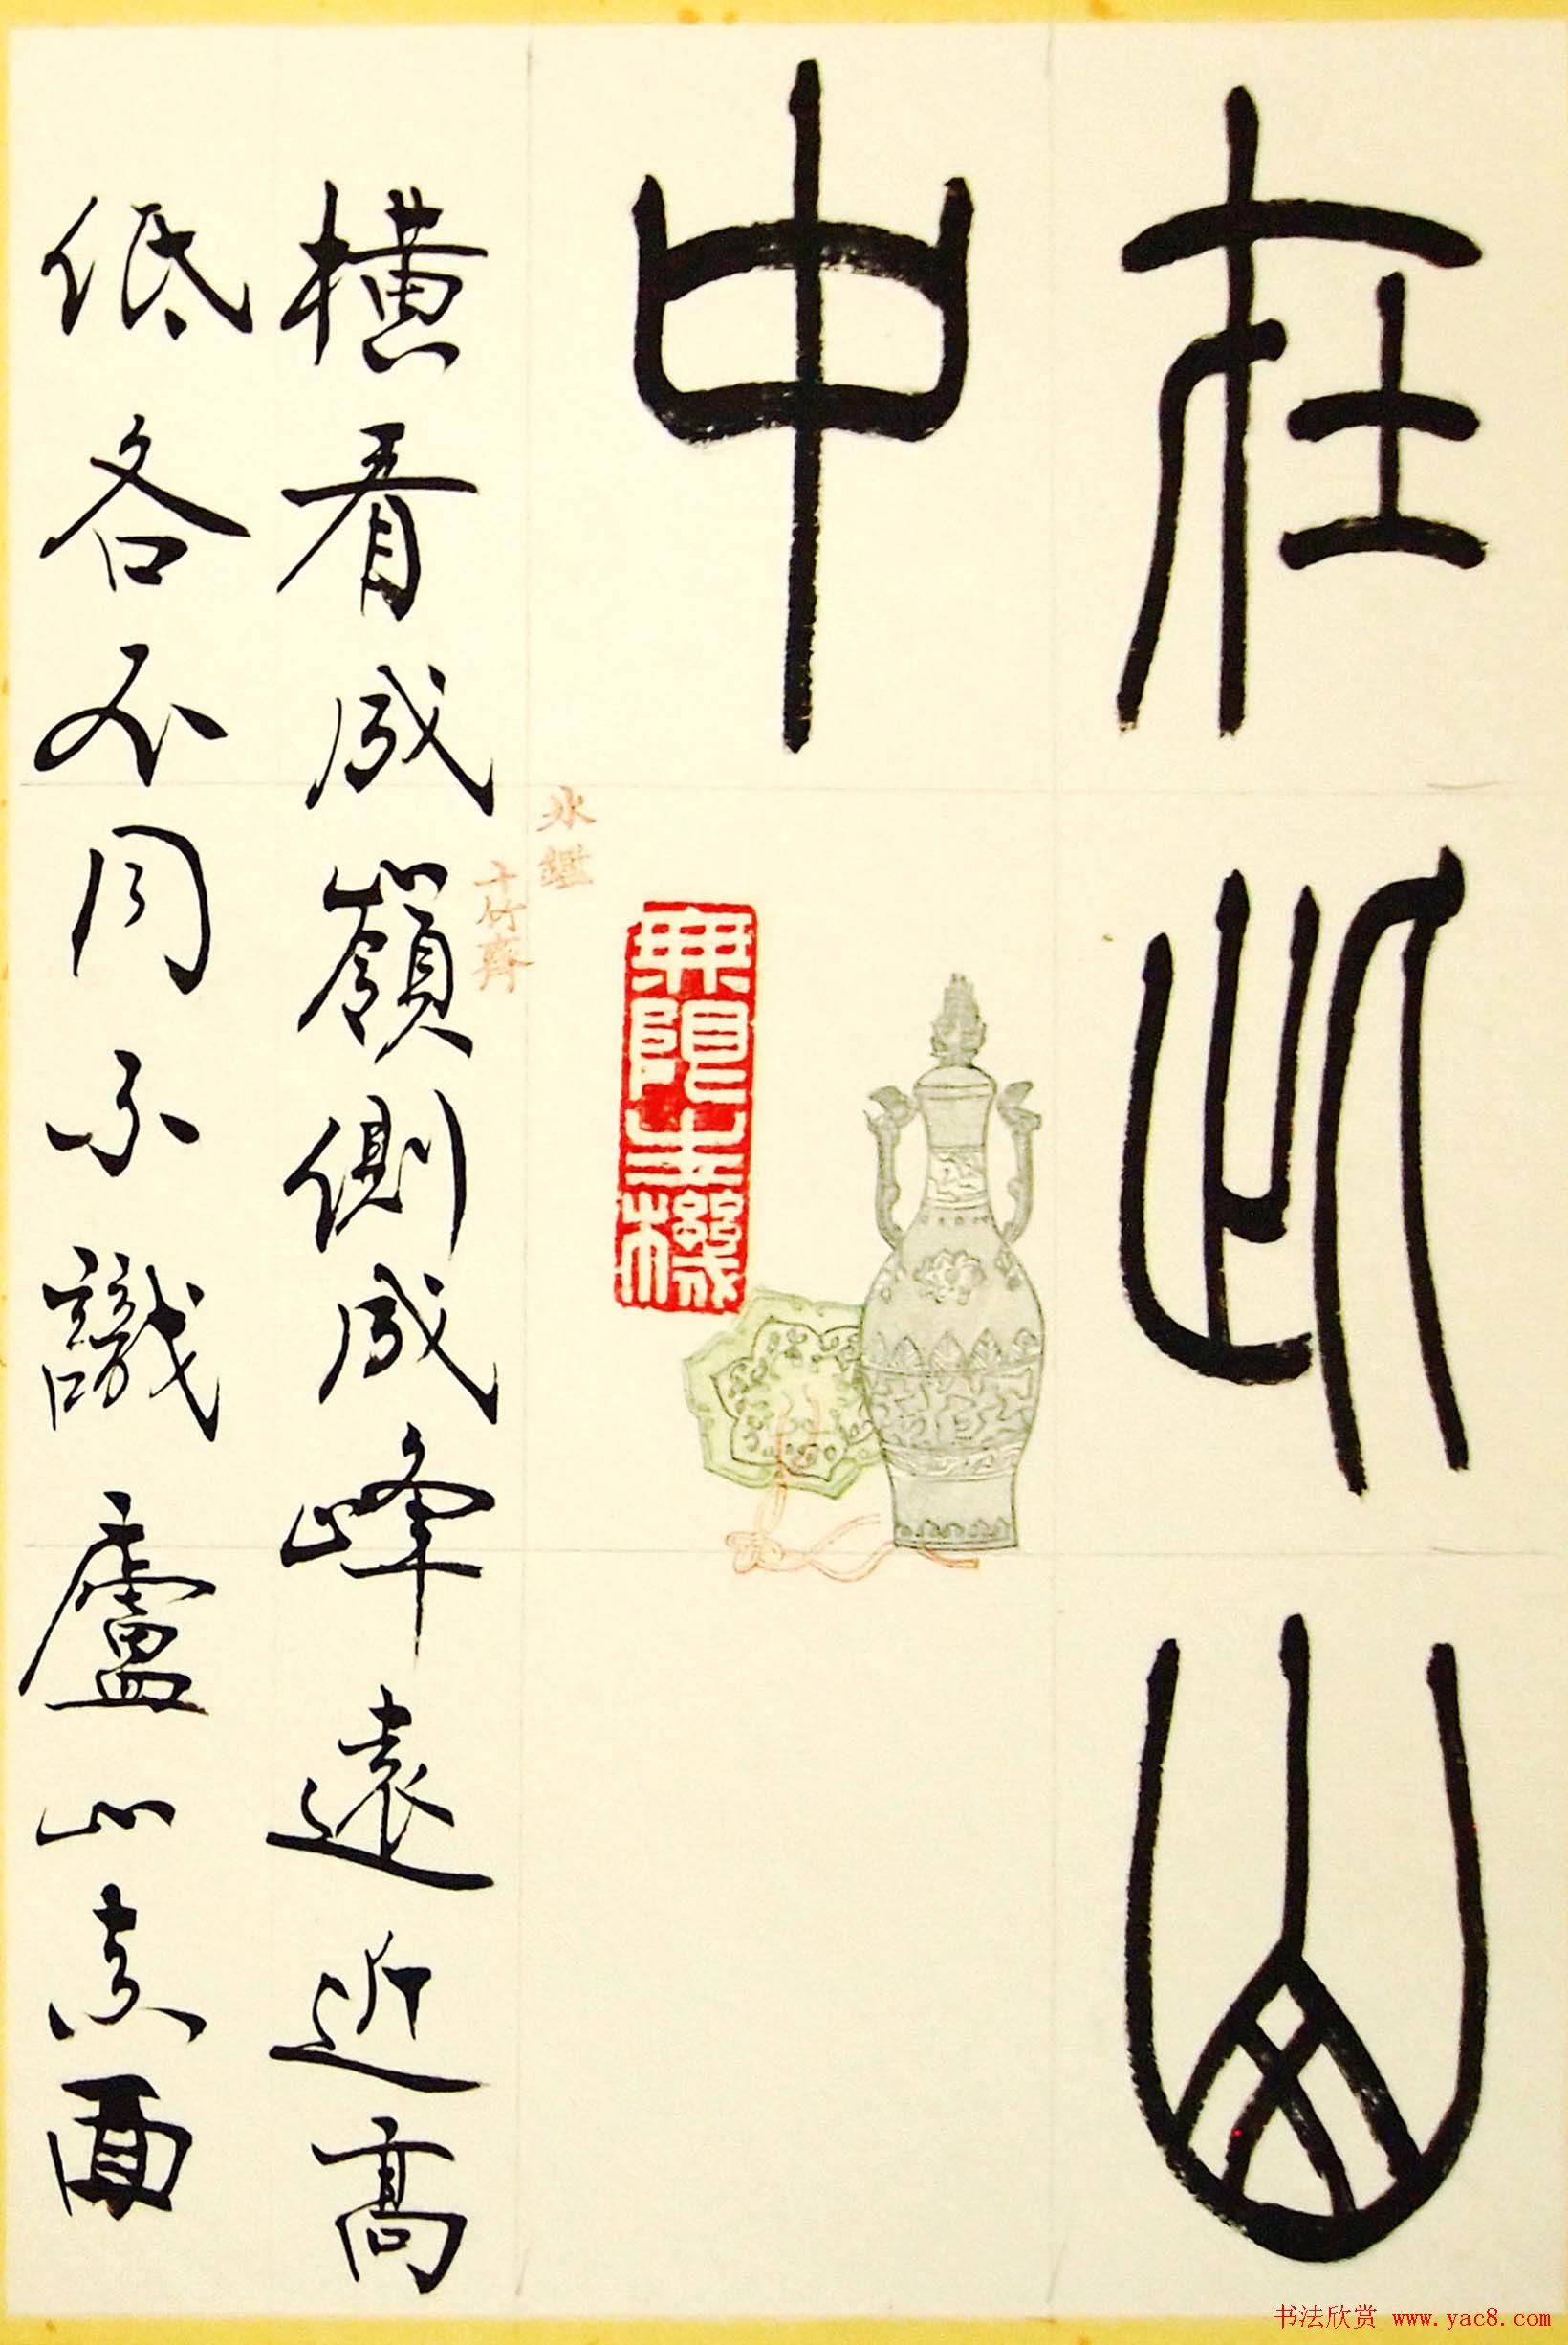 在此山
中
無限生機
冰鑑
十竹齋
橫看成嶺側成峰遠近高
低各不同不識廬山真面
书法欣赏 www.yac8.com